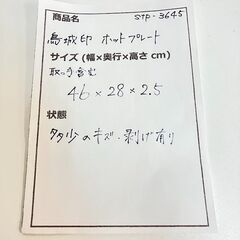 商品名 STP-3645
鳥城印 ホットプレート
サイズ (幅×奥行×高さ cm)
取っ手含む
46×28×2.5
状態
多少のキズ・剥げ有り